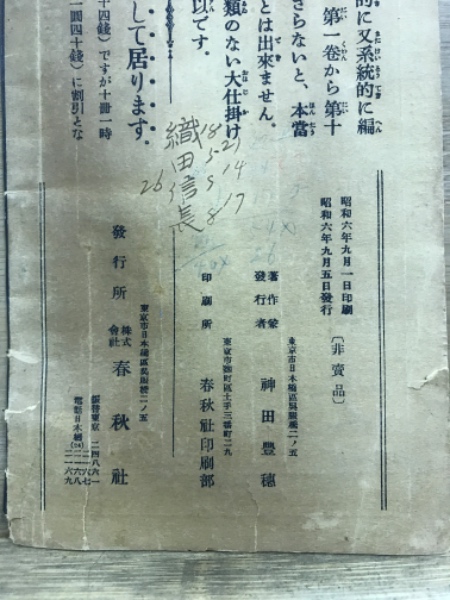 的に又系統的に編
第一卷から第十
さらないと、本當
とは出來ません。
類のない大仕掛け
以です。
して居ります。
十四錢）ですが十冊一時
一圓四十錢）に割引とな
織田信長
18
5 21
5 14
26
8 17
昭和六年九月一日印刷
昭和六年九月五日發行
〔非賣品〕
東京市日本橋區吳服橋二ノ五
著作兼
發行者
神田豐穗
東京市麴町區土手三番町二九
印刷所
春秋社印刷部
東京市日本橋區吳服橋二ノ五
發行所
株式
會社
春秋社
振替東京二四八六一
電話日本橋(24)
二一六七
二一六八
二一六九